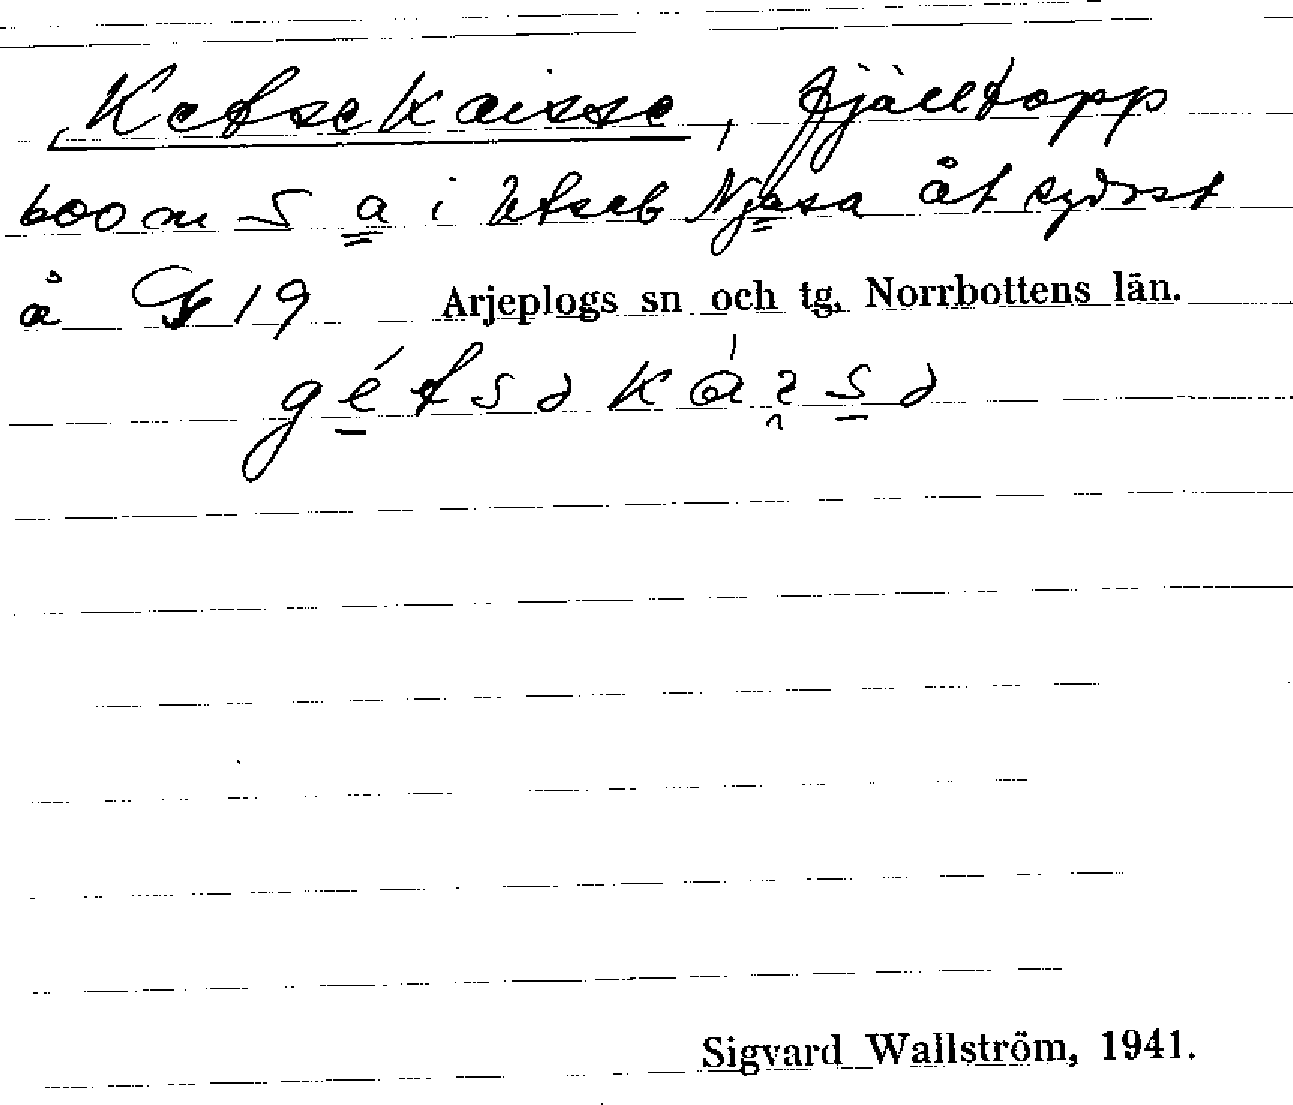 Ketsekaisse, fjälltopp
600 m S a i Utseb Njasa åt sydost
å G 19 Arjeplogs sn och tg, Norrbottens län.
Sigvard Wallström, 1941.